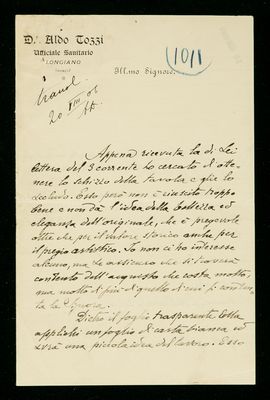 Dr. Aldo Tozzi
Ufficiale Sanitario
LONGIANO
1011
Ill.mo Signore,
20 VIII 06
Appena ricevuta la di Lei
lettera del 3 corrente ho cercato di otte-
nere lo schizzo della tavola e glie lo
includo. Esso però non è riuscito troppo
bene e non dà l'idea della bellezza ed
eleganza dell'originale, che è pregevole
oltre che pel valore storico anche per
il pregio artistico. Io non ci ho interesse
alcuno, ma Le assicuro che si troverà
contento dell'acquisto che costa molto,
ma molto di più di quello di cui si contenta
la Signora.
Dietro il foglio trasparente Ella
applichi un foglio di carta bianca ed
avrà una piccola idea del lavoro. Esso